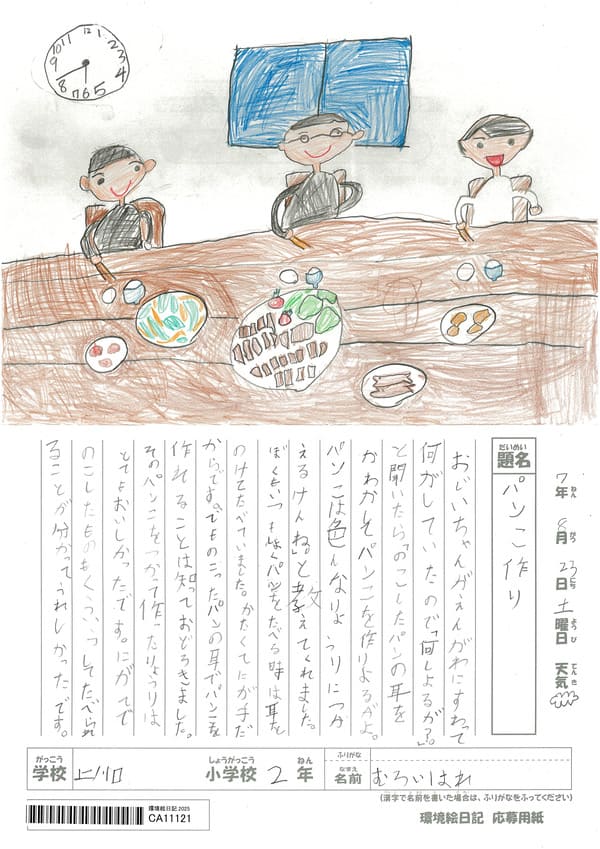 10 11 12 1 2 3 4 5 6 7 8 9
だいめい
題名
パンこ作り
7年 8月 23日 土曜日 天気
ねん がつ にち ようび てんき
おじいちゃんがえんがわにすわって
何がしていたので「何しよるが?」
と聞いたら「のこしたパンの耳を
かわかしてパンこを作りよるがよ。
パンこは色んなりょうりにつか
えるけんね」と教えてくれました。
ぼくもいつもしょくパンをたべる時は耳を
のけてたべていました。かたくてにが手だ
からです。でものこったパンの耳でパンこを
作れることは知っておどろきました。
そのパンこをつかって作ったりょうりは
とてもおいしかったです。にがてで
のこしたものもくふうしてたべられ
ることが分かってうれしかったです。
がっこう
学校
上川口
しょうがっこう
小学校
2
ねん
年
ふりがな
なまえ
名前
むろいはれ
(漢字で名前を書いた場合は、ふりがなをふってください)
環境絵日記 2025
CA11121
環境絵日記 応募用紙